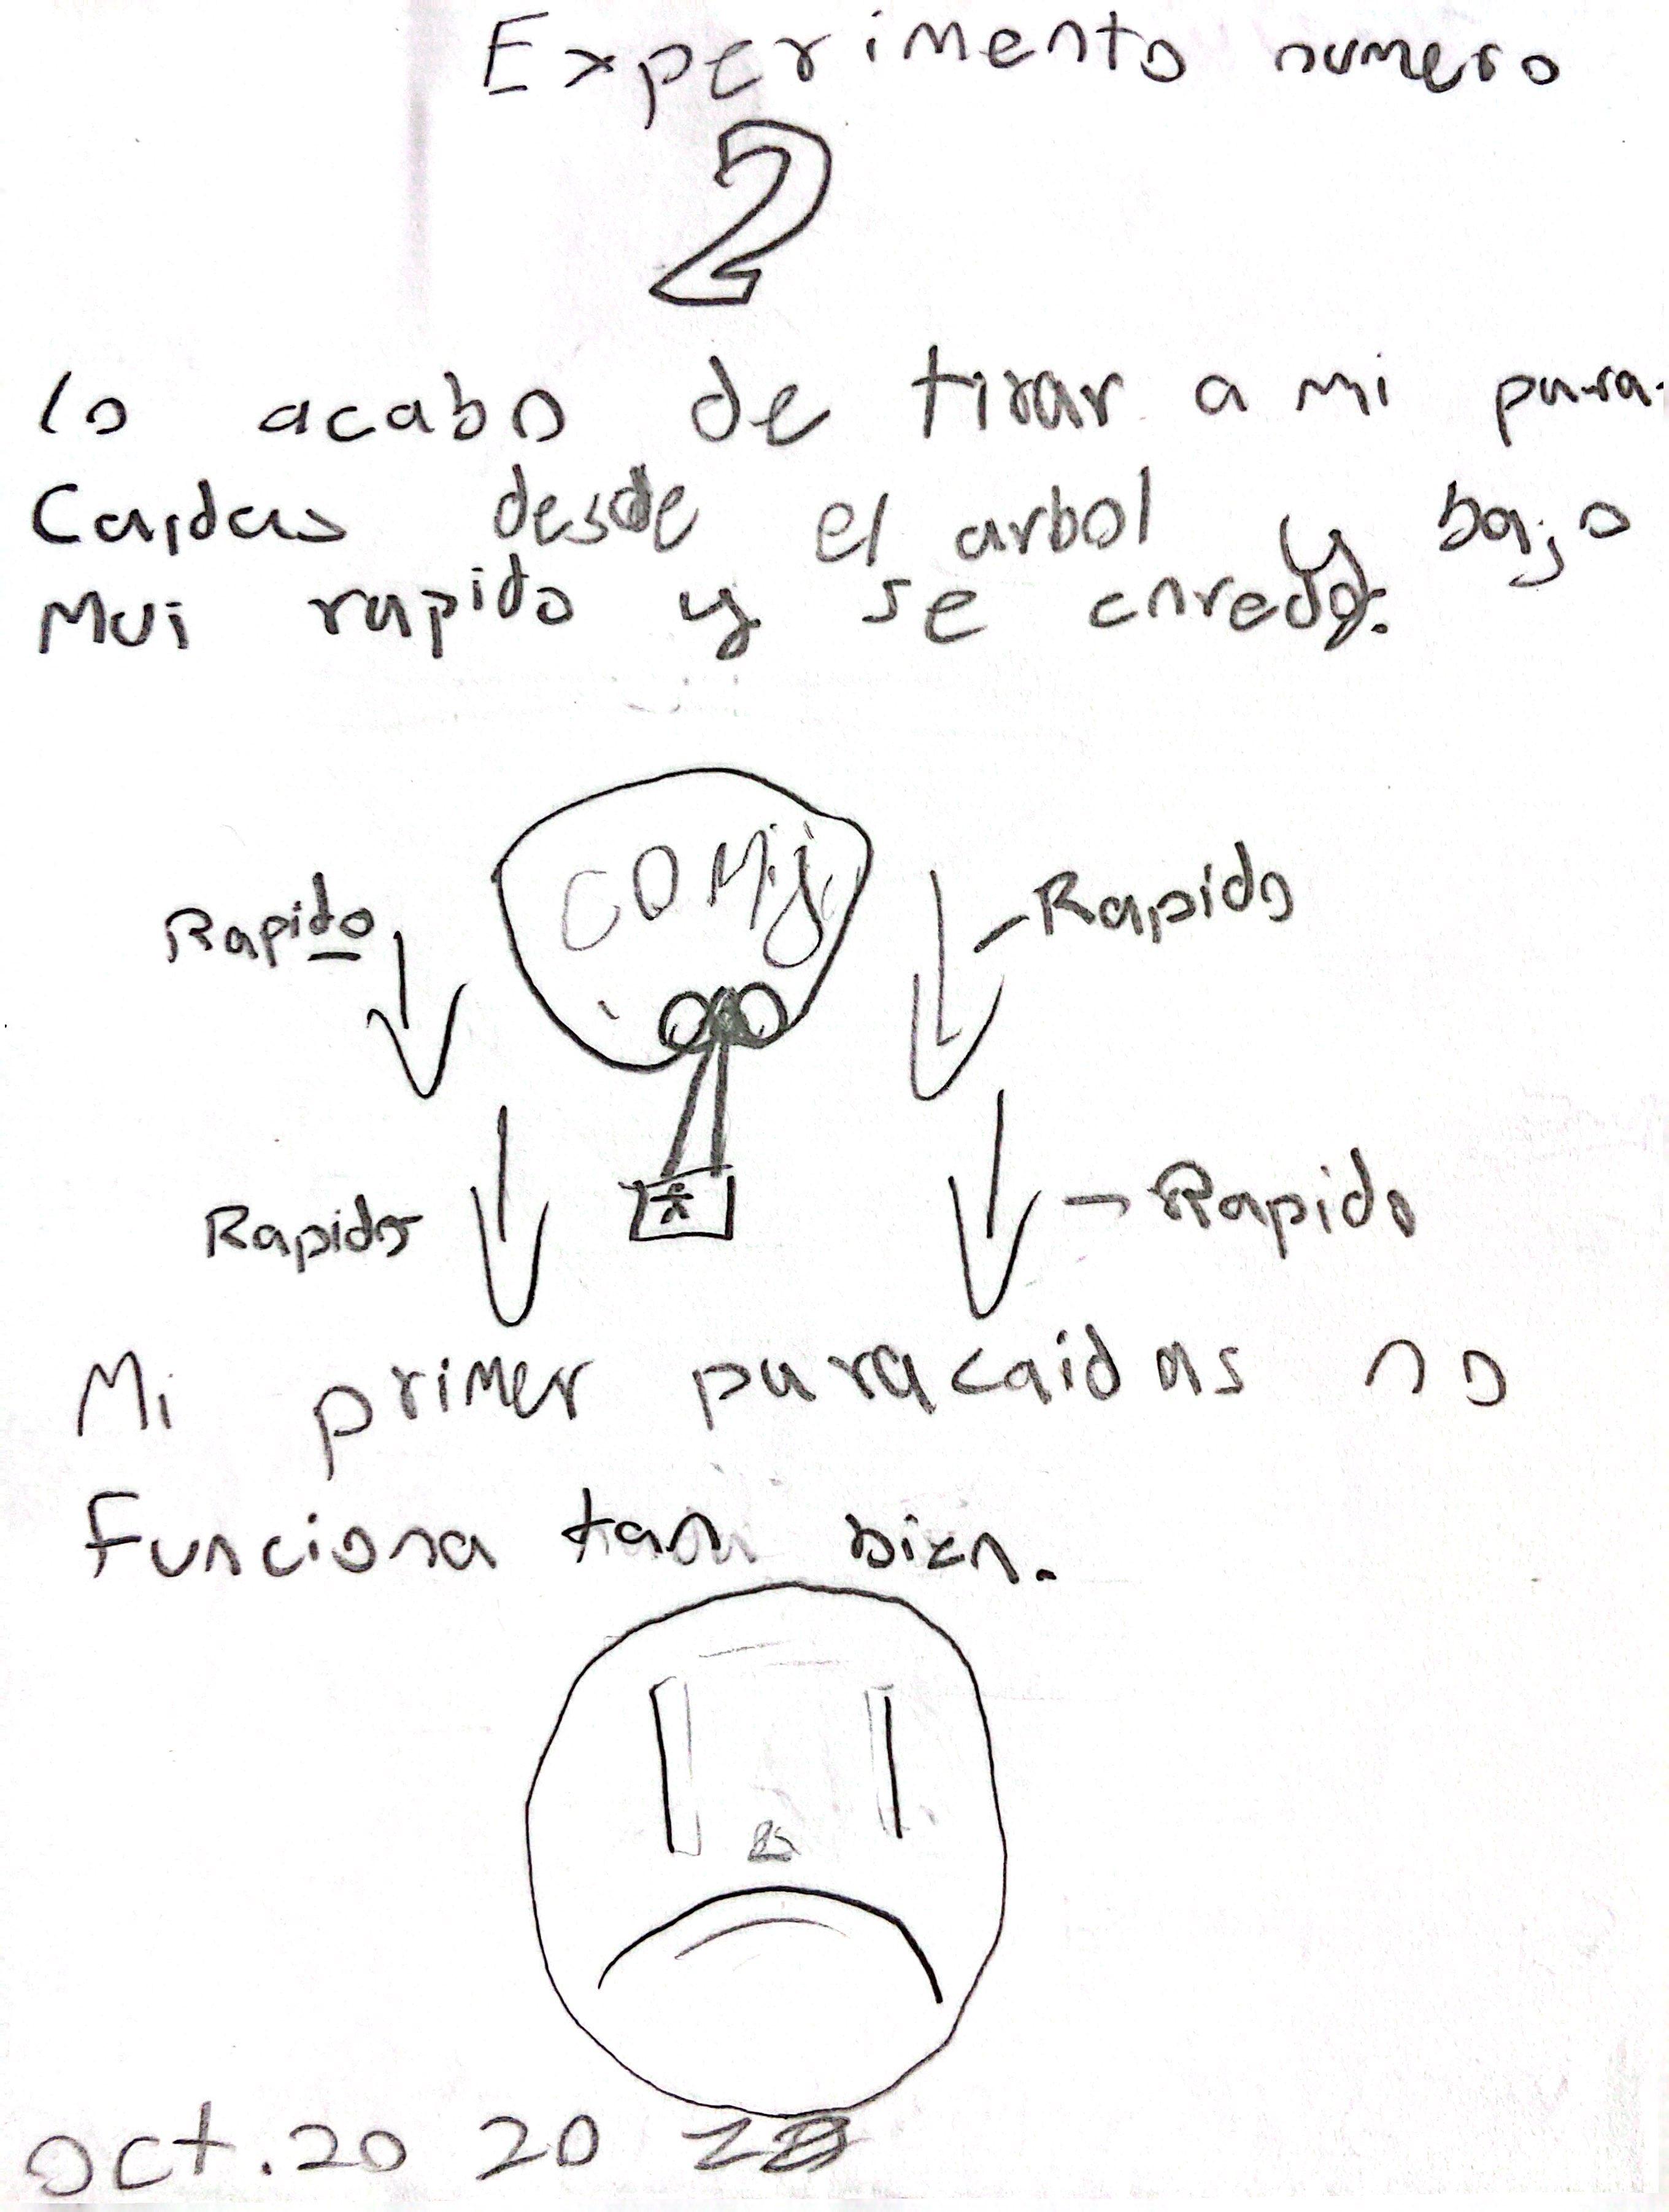 Experimento numero
2
lo acabo de tirar a mi para-
Caidas desde el arbol y bajo
Mui rapido y se enredo.
COMij
Rapido
-Rapido
Rapido
-Rapido
Mi primer paracaidas no
Funciona tan bien.
oct. 20 20